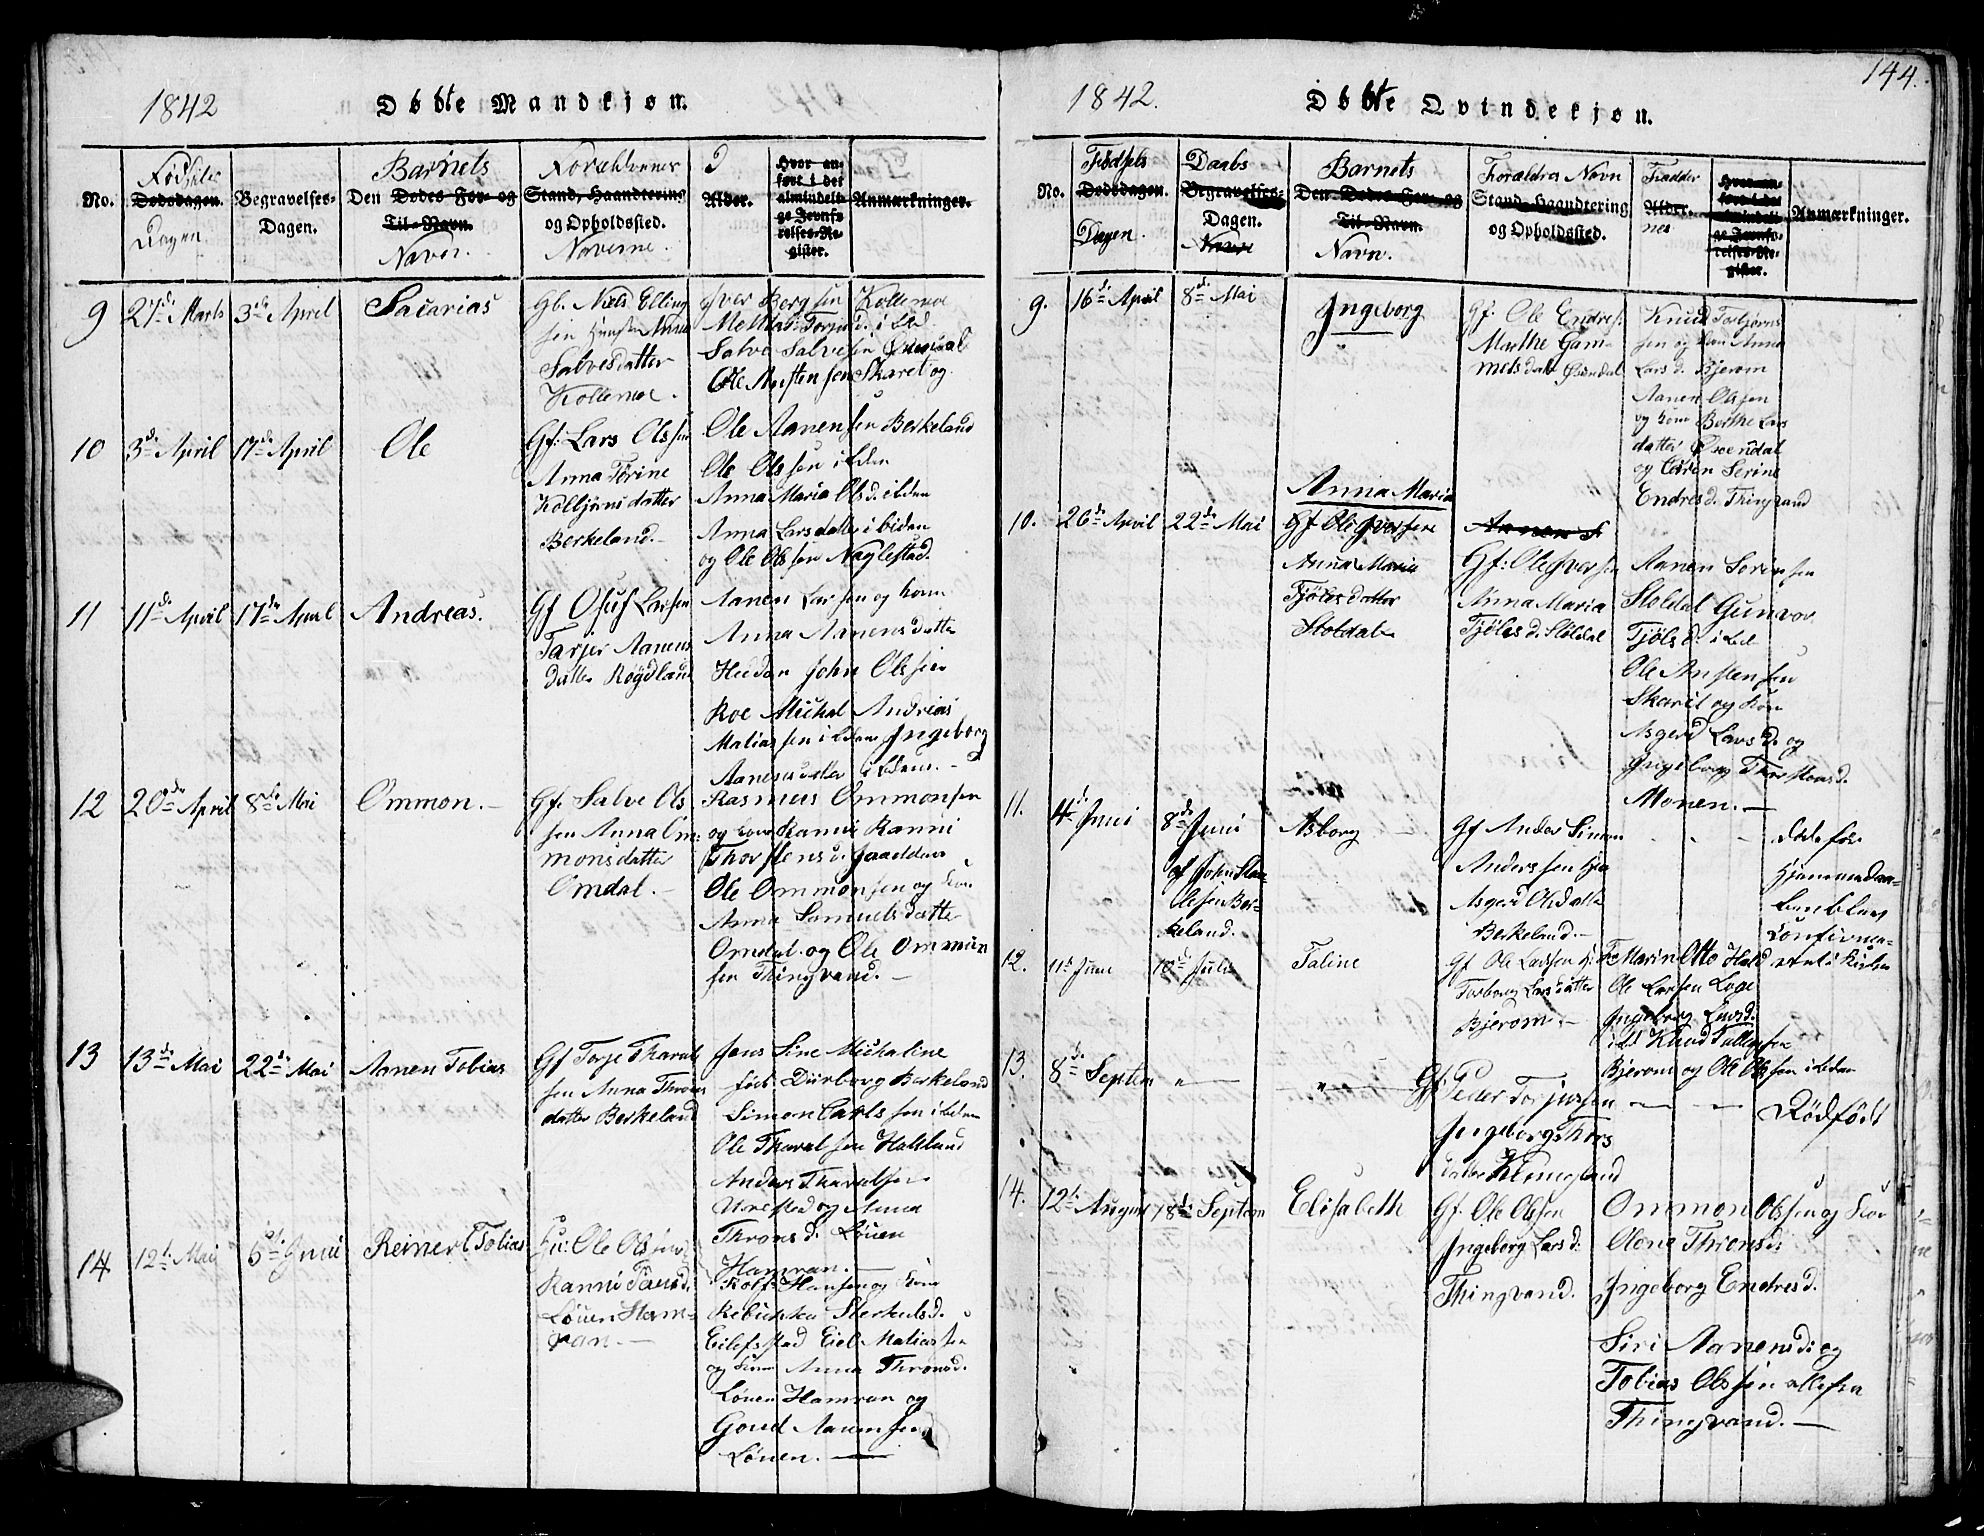 1842
Døbte Mandkjøn.
No.
Fødsels
Dødsdagen.
Dagen
Begravelses-
Dagen.
Barnets
Den Dødes For- og
Til-Navn.
Navn.
Forældrenes
Stand, Haandtering
og Opholdssted.
Navnene.
Alder.
Hvor an-
ført i det
almindeli-
ge Jevnfø-
relses-Re-
gister.
Anmærkninger.
9
27de Marts
3de April
Sacarias
Gb. Niels Elling
sen
Salvesdatter
Kollemoe.
Iver Bergsen Kollemoe
Salve Salvesen
Ole Anstensen Skaret og
10
3de April
17de April
Ole
Gf: Lars Olssen
Anna Torine
Kolbjørnsdatter
Berkeland.
Ole Aanensen Berkeland
Ole Olssen ibiden
Anna Maria Olsd. ibiden
Anna Larsdatter ibiden
og Ole Olssen Naglestad.
11
11de April
17de April
Andreas.
Gf Osuf Larsen
Tarjer Aanens
datter Røydland
Aanen Larsen og kone
Anna Aanensdatter
Heddan John Olssen
Roe Michal Andreas
Matiassen ibidem Ingeborg
Aanensdatter ibidem.
12
20de April
8de Mai
Ommon.
Gf. Salve Ols
sen Anna Om
monsdatter
Omdal.
Rasmus Ommonsen
og kone Ranni
Thorstensd.
Ole Ommonsen og kone
Anna Samuelsdatter
Omdal og Ole Ommun
sen Thingvand.
13
13de Mai
22de Mai
Aanen Tobias
Gf Torje Tharal
sen Anna Throns
datter Berkeland
Jens Sine Michaline
født Durborg Berkeland
Simon Carlssen ibidem
Ole Tharalsen Haaland
Anders Tharalsen
Urestad og Anna
Thronsd. Løuen
Hamran.
14
12te Mai
5te Juni
Reinert Tobias
Gu: Ole Olssen
Ranni
Løuen Ham-
ran.
Rolf Hansen og kone
Rebekka
Eilefsstad Eiel Matiassen
og kone Anna Thronsd.
Løuen Hamran og
Goud Aanensen
Løuen.
144.
1842.
Døbte Qvindekjøn.
No.
Fødsels
Dødsdagen.
Dagen.
Daabs
Begravelses-
Dagen.
Navn
Barnets
Den Dødes For- og
Til-Navn.
Navn.
Forældres Navn
Stand, Haandtering
og Opholdssted.
Fadder
Alder.
nes
Hvor an-
ført i det
almindeli-
ge Jevnfø-
relses-Re-
gister.
Anmærkninger.
9.
16de April
8de Mai
Ingeborg
Gf. Ole Endres:
Marthe Gam
melsdatr
Knud Torbjørns
sen og kone Anna
Larsd. Bjerom
Aanen Olssen
og kone Berthe Lars
datter
og Serine
Endresd. Thingvand
10.
26de April
22de Mai
Anna Maria
Gf Ole Iversen
Anna Maria
Tjølesdatter
Stoldal
Gf: Ole Iversen
Anna Maria
Tjølesd. Støldal
Aanen Sørensen
Støldal Gunvor
Tjølsd. ibid
Ole Anstensen
Skaret og kone
Asgerd Larsd. og
Ingeborg Thorstensd.
Monen.
11.
4de Juni
8de Juni
af John
Olesen Ber-
keland.
Asborg
Gf Anders Simon
Anderssen
Asgerd Olsdatter
Berkeland.
Døde før
Hjemmedaa-
ben blev
Confirme-
ret i Kirken
12.
11te Juni
10de Juli
Taline
Gf Ole Larssen
Torborg Larsdatter
Bjerom.
Marin Otto Hald
Ole Larsen Loge
Ingeborg Larsd.
ibd Knud Tallefsen
Bjerom og Ole Olssen ibidem
13.
8de Septem
Gf Peder Torjussen
Ingeborg Thors
datter
Dødfødt
14.
12te August
18de Septem
Elisabeth
Gf. Ole Olssen
Ingeborg Larsd:
Thingvand.
Ommon Olssen og kone
Olena
Ingeborg Endresd.
Siri Aanensd: og
Tobias Olssen alle fra
Thingvand.